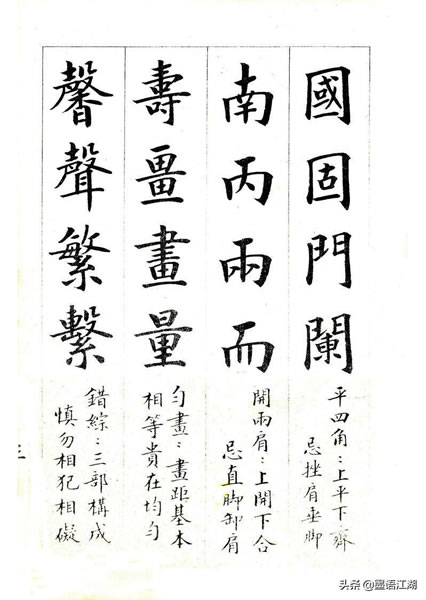 國固門闌
平四角：上平下齊
忌挫肩垂脚
南丙雨而
開兩肩：上開下合
忌直脚卸肩
壽畺畫量
匀畫：畫距基本
相等貴在均匀
馨聲繁繫
錯綜：三部構成
慎勿相犯相礙
三
头条@墨语江湖